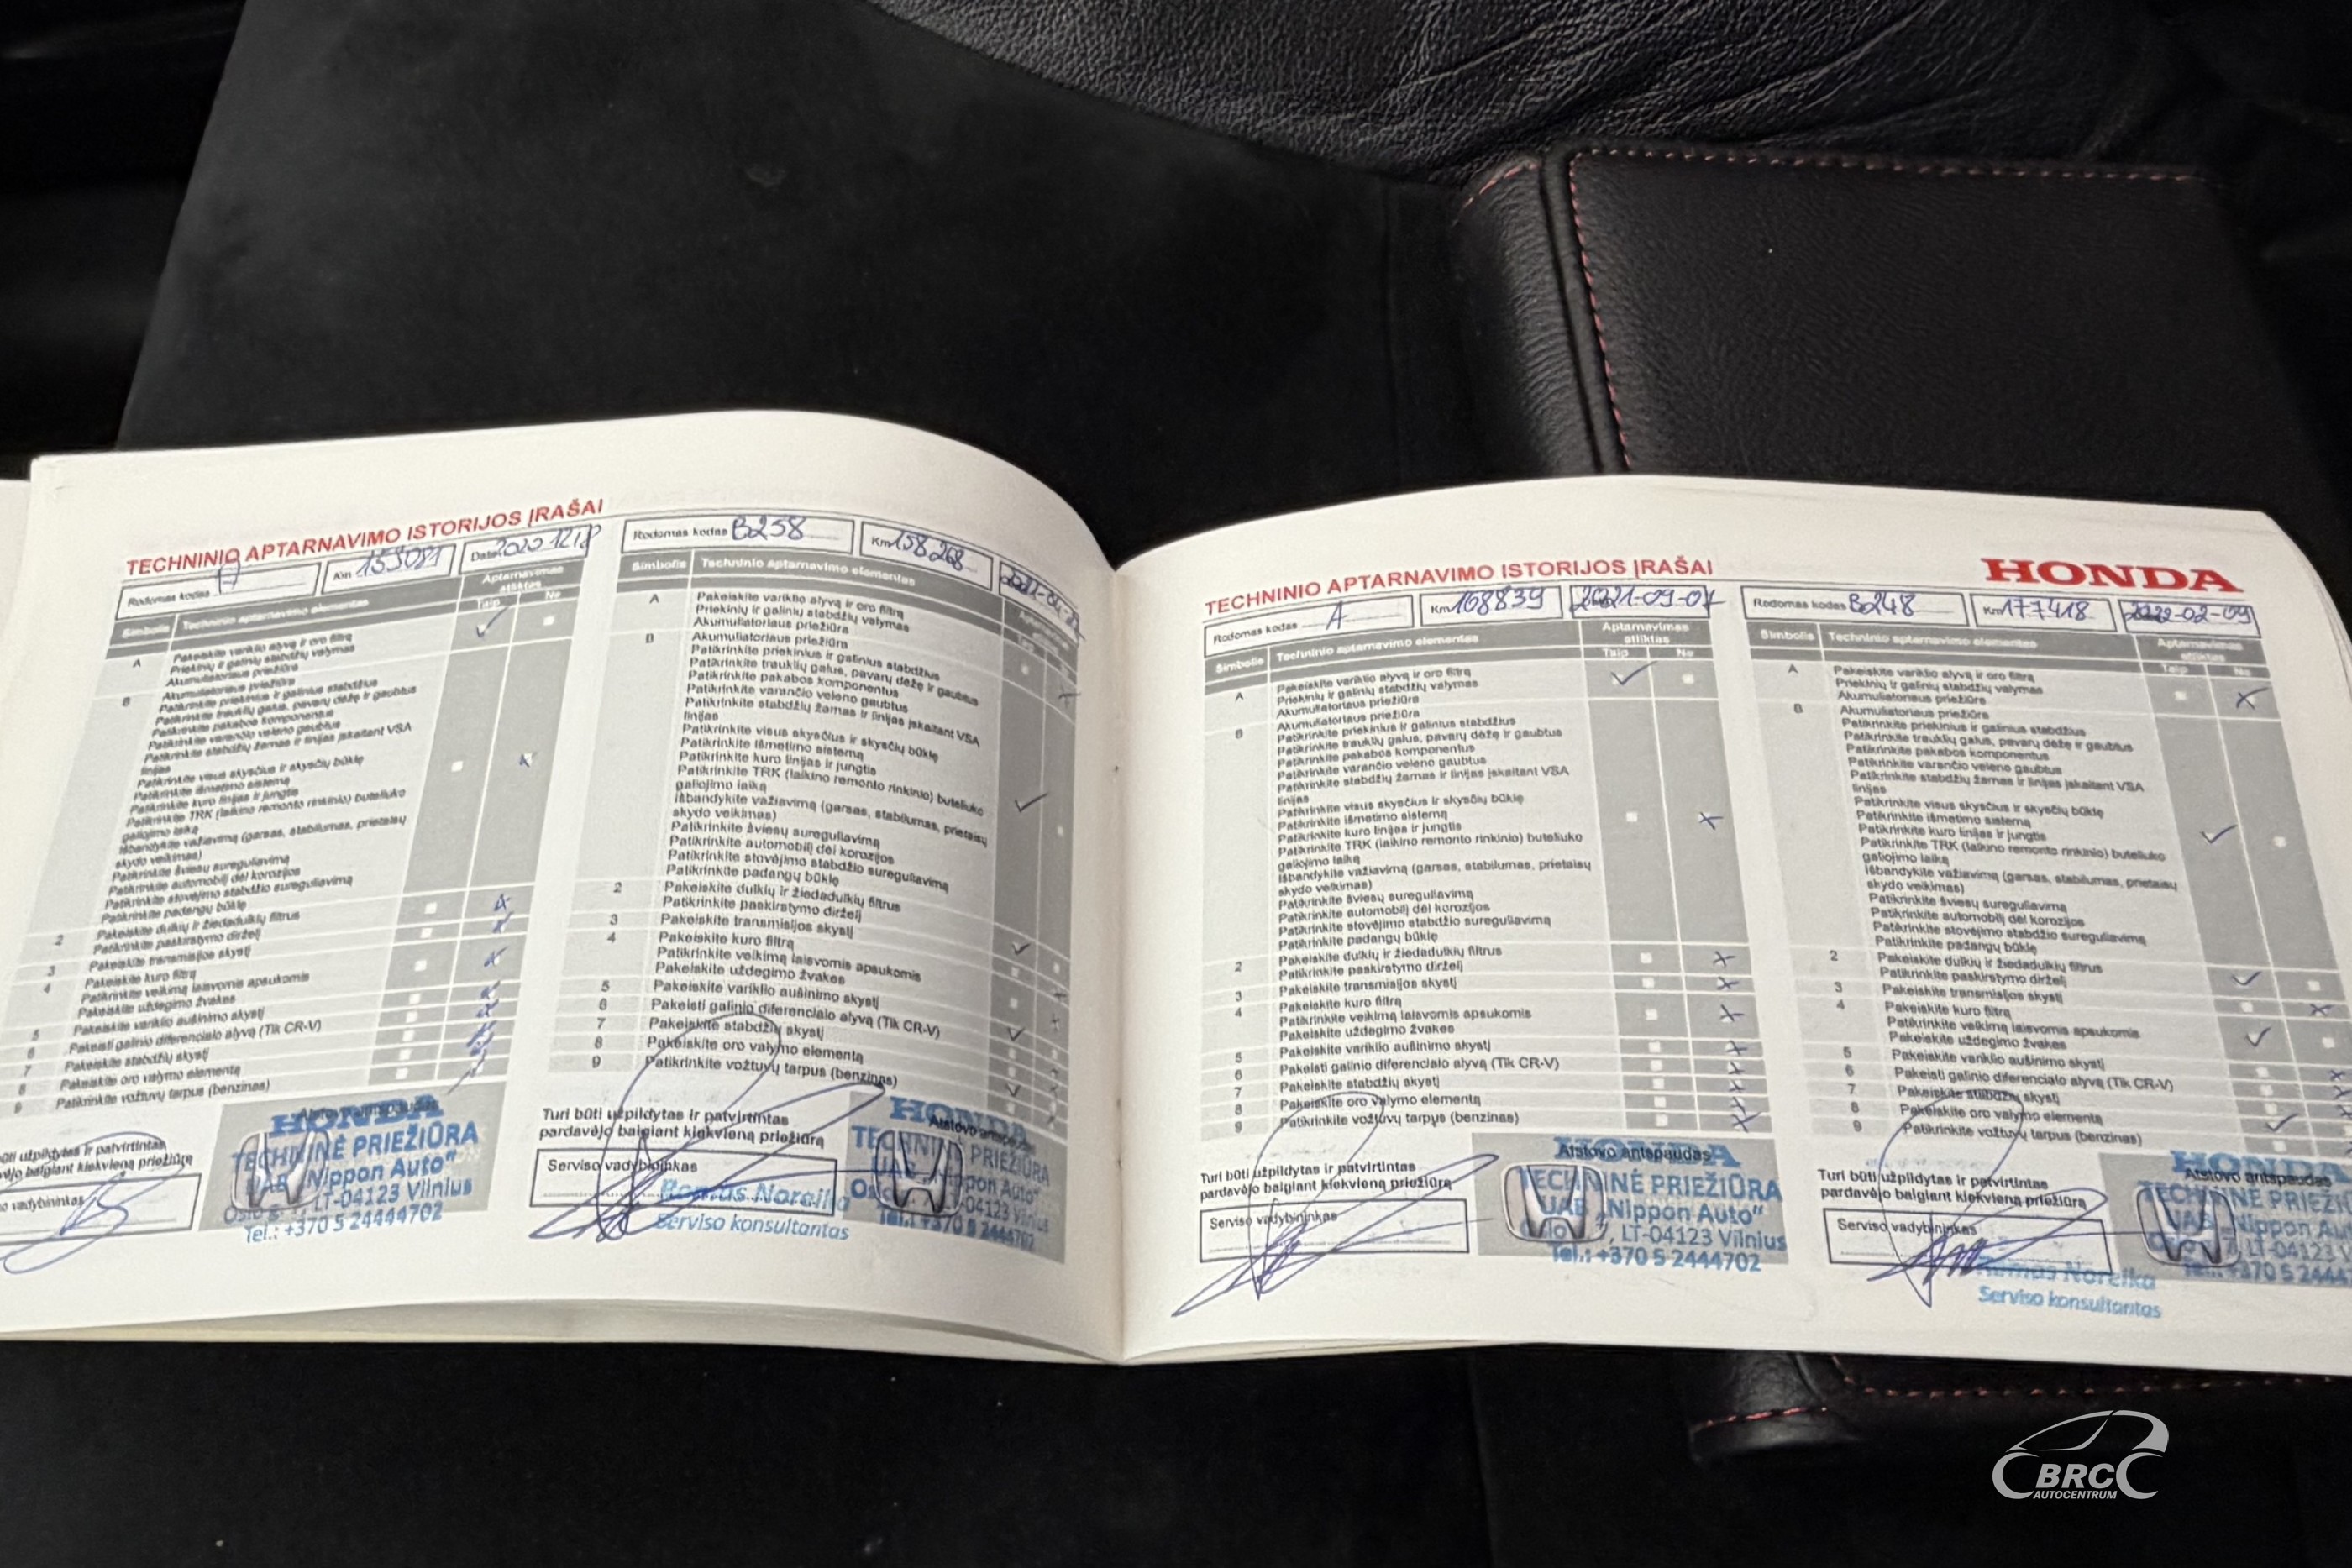 TECHNINIO APTARNAVIMO ISTORIJOS ĮRAŠAI
Rodomas kodas A
Km 153081
Data 2020 12 18
Simbolis Techninio aptarnavimo elementas
Aptarnavimas atliktas
Taip Ne
A Pakeiskite variklio alyvą ir oro filtrą
Priekinių ir galinių stabdžių valymas
Akumuliatoriaus priežiūra
B Akumuliatoriaus priežiūra
Patikrinkite priekinius ir galinius stabdžius
Patikrinkite trauklių galus, pavarų dėžę ir gaubtus
Patikrinkite pakabos komponentus
Patikrinkite varančio veleno gaubtus
Patikrinkite stabdžių žarnas ir linijas įskaitant VSA
linijas
Patikrinkite visus skysčius ir skysčių būklę
Patikrinkite išmetimo sistemą
Patikrinkite kuro linijas ir jungtis
Patikrinkite TRK (laikino remonto rinkinio) buteliuko
galiojimo laiką
Išbandykite važiavimą (garsas, stabilumas, prietaisų
skydo veikimas)
Patikrinkite šviesų sureguliavimą
Patikrinkite automobilį dėl korozijos
Patikrinkite stovėjimo stabdžio sureguliavimą
Patikrinkite padangų būklę
2 Pakeiskite dulkių ir žiedadulkių filtrus
Patikrinkite paskirstymo dirželį
3 Pakeiskite transmisijos skystį
4 Pakeiskite kuro filtrą
Patikrinkite veikimą laisvomis apsukomis
Pakeiskite uždegimo žvakes
5 Pakeiskite variklio aušinimo skystį
6 Pakeisti galinio diferencialo alyvą (Tik CR-V)
7 Pakeiskite stabdžių skystį
8 Pakeiskite oro valymo elementą
9 Patikrinkite vožtuvų tarpus (benzinas)
HONDA
TECHNINĖ PRIEŽIŪRA
UAB „Nippon Auto“
Oslo g. 1, LT-04123 Vilnius
Tel.: +370 5 24444702
Rodomas kodas B258
Km 158268
2021-04-22
Simbolis Techninio aptarnavimo elementas
A Pakeiskite variklio alyvą ir oro filtrą
Priekinių ir galinių stabdžių valymas
Akumuliatoriaus priežiūra
B Akumuliatoriaus priežiūra
Patikrinkite priekinius ir galinius stabdžius
Patikrinkite trauklių galus, pavarų dėžę ir gaubtus
Patikrinkite pakabos komponentus
Patikrinkite varančio veleno gaubtus
Patikrinkite stabdžių žarnas ir linijas įskaitant VSA
linijas
Patikrinkite visus skysčius ir skysčių būklę
Patikrinkite išmetimo sistemą
Patikrinkite kuro linijas ir jungtis
Patikrinkite TRK (laikino remonto rinkinio) buteliuko
galiojimo laiką
Išbandykite važiavimą (garsas, stabilumas, prietaisų
skydo veikimas)
Patikrinkite šviesų sureguliavimą
Patikrinkite automobilį dėl korozijos
Patikrinkite stovėjimo stabdžio sureguliavimą
Patikrinkite padangų būklę
2 Pakeiskite dulkių ir žiedadulkių filtrus
Patikrinkite paskirstymo dirželį
3 Pakeiskite transmisijos skystį
4 Pakeiskite kuro filtrą
Patikrinkite veikimą laisvomis apsukomis
Pakeiskite uždegimo žvakes
5 Pakeiskite variklio aušinimo skystį
6 Pakeisti galinio diferencialo alyvą (Tik CR-V)
7 Pakeiskite stabdžių skystį
8 Pakeiskite oro valymo elementą
9 Patikrinkite vožtuvų tarpus (benzinas)
Turi būti užpildytas ir patvirtintas
pardavėjo baigiant kiekvieną priežiūrą
Serviso vadybininkas
Ramus Noreika
Serviso konsultantas
HONDA
Atstovo antspaudas
TECHNINĖ PRIEŽIŪRA
TECHNINIO APTARNAVIMO ISTORIJOS ĮRAŠAI
HONDA
Rodomas kodas A
Km 168839
2021-09-07
Simbolis Techninio aptarnavimo elementas
Aptarnavimas atliktas
Taip Ne
A Pakeiskite variklio alyvą ir oro filtrą
Priekinių ir galinių stabdžių valymas
Akumuliatoriaus priežiūra
B Akumuliatoriaus priežiūra
Patikrinkite priekinius ir galinius stabdžius
Patikrinkite trauklių galus, pavarų dėžę ir gaubtus
Patikrinkite pakabos komponentus
Patikrinkite varančio veleno gaubtus
Patikrinkite stabdžių žarnas ir linijas įskaitant VSA
linijas
Patikrinkite visus skysčius ir skysčių būklę
Patikrinkite išmetimo sistemą
Patikrinkite kuro linijas ir jungtis
Patikrinkite TRK (laikino remonto rinkinio) buteliuko
galiojimo laiką
Išbandykite važiavimą (garsas, stabilumas, prietaisų
skydo veikimas)
Patikrinkite šviesų sureguliavimą
Patikrinkite automobilį dėl korozijos
Patikrinkite stovėjimo stabdžio sureguliavimą
Patikrinkite padangų būklę
2 Pakeiskite dulkių ir žiedadulkių filtrus
Patikrinkite paskirstymo dirželį
3 Pakeiskite transmisijos skystį
4 Pakeiskite kuro filtrą
Patikrinkite veikimą laisvomis apsukomis
Pakeiskite uždegimo žvakes
5 Pakeiskite variklio aušinimo skystį
6 Pakeisti galinio diferencialo alyvą (Tik CR-V)
7 Pakeiskite stabdžių skystį
8 Pakeiskite oro valymo elementą
9 Patikrinkite vožtuvų tarpus (benzinas)
Turi būti užpildytas ir patvirtintas
pardavėjo baigiant kiekvieną priežiūrą
Serviso vadybininkas
HONDA
Atstovo antspaudas
TECHNINĖ PRIEŽIŪRA
UAB „Nippon Auto“
LT-04123 Vilnius
Tel.: +370 5 2444702
Rodomas kodas B248
Km 177418
2022-02-09
Simbolis Techninio aptarnavimo elementas
Aptarnavimas atliktas
Taip Ne
A Pakeiskite variklio alyvą ir oro filtrą
Priekinių ir galinių stabdžių valymas
Akumuliatoriaus priežiūra
B Akumuliatoriaus priežiūra
Patikrinkite priekinius ir galinius stabdžius
Patikrinkite trauklių galus, pavarų dėžę ir gaubtus
Patikrinkite pakabos komponentus
Patikrinkite varančio veleno gaubtus
Patikrinkite stabdžių žarnas ir linijas įskaitant VSA
linijas
Patikrinkite visus skysčius ir skysčių būklę
Patikrinkite išmetimo sistemą
Patikrinkite kuro linijas ir jungtis
Patikrinkite TRK (laikino remonto rinkinio) buteliuko
galiojimo laiką
Išbandykite važiavimą (garsas, stabilumas, prietaisų
skydo veikimas)
Patikrinkite šviesų sureguliavimą
Patikrinkite automobilį dėl korozijos
Patikrinkite stovėjimo stabdžio sureguliavimą
Patikrinkite padangų būklę
2 Pakeiskite dulkių ir žiedadulkių filtrus
Patikrinkite paskirstymo dirželį
3 Pakeiskite transmisijos skystį
4 Pakeiskite kuro filtrą
Patikrinkite veikimą laisvomis apsukomis
Pakeiskite uždegimo žvakes
5 Pakeiskite variklio aušinimo skystį
6 Pakeisti galinio diferencialo alyvą (Tik CR-V)
7 Pakeiskite stabdžių skystį
8 Pakeiskite oro valymo elementą
9 Patikrinkite vožtuvų tarpus (benzinas)
Turi būti užpildytas ir patvirtintas
pardavėjo baigiant kiekvieną priežiūrą
Serviso vadybininkas
Noreika
Serviso konsultantas
HONDA
Atstovo antspaudas
TECHNINĖ PRIEŽI
BRC
AUTOCENTRUM